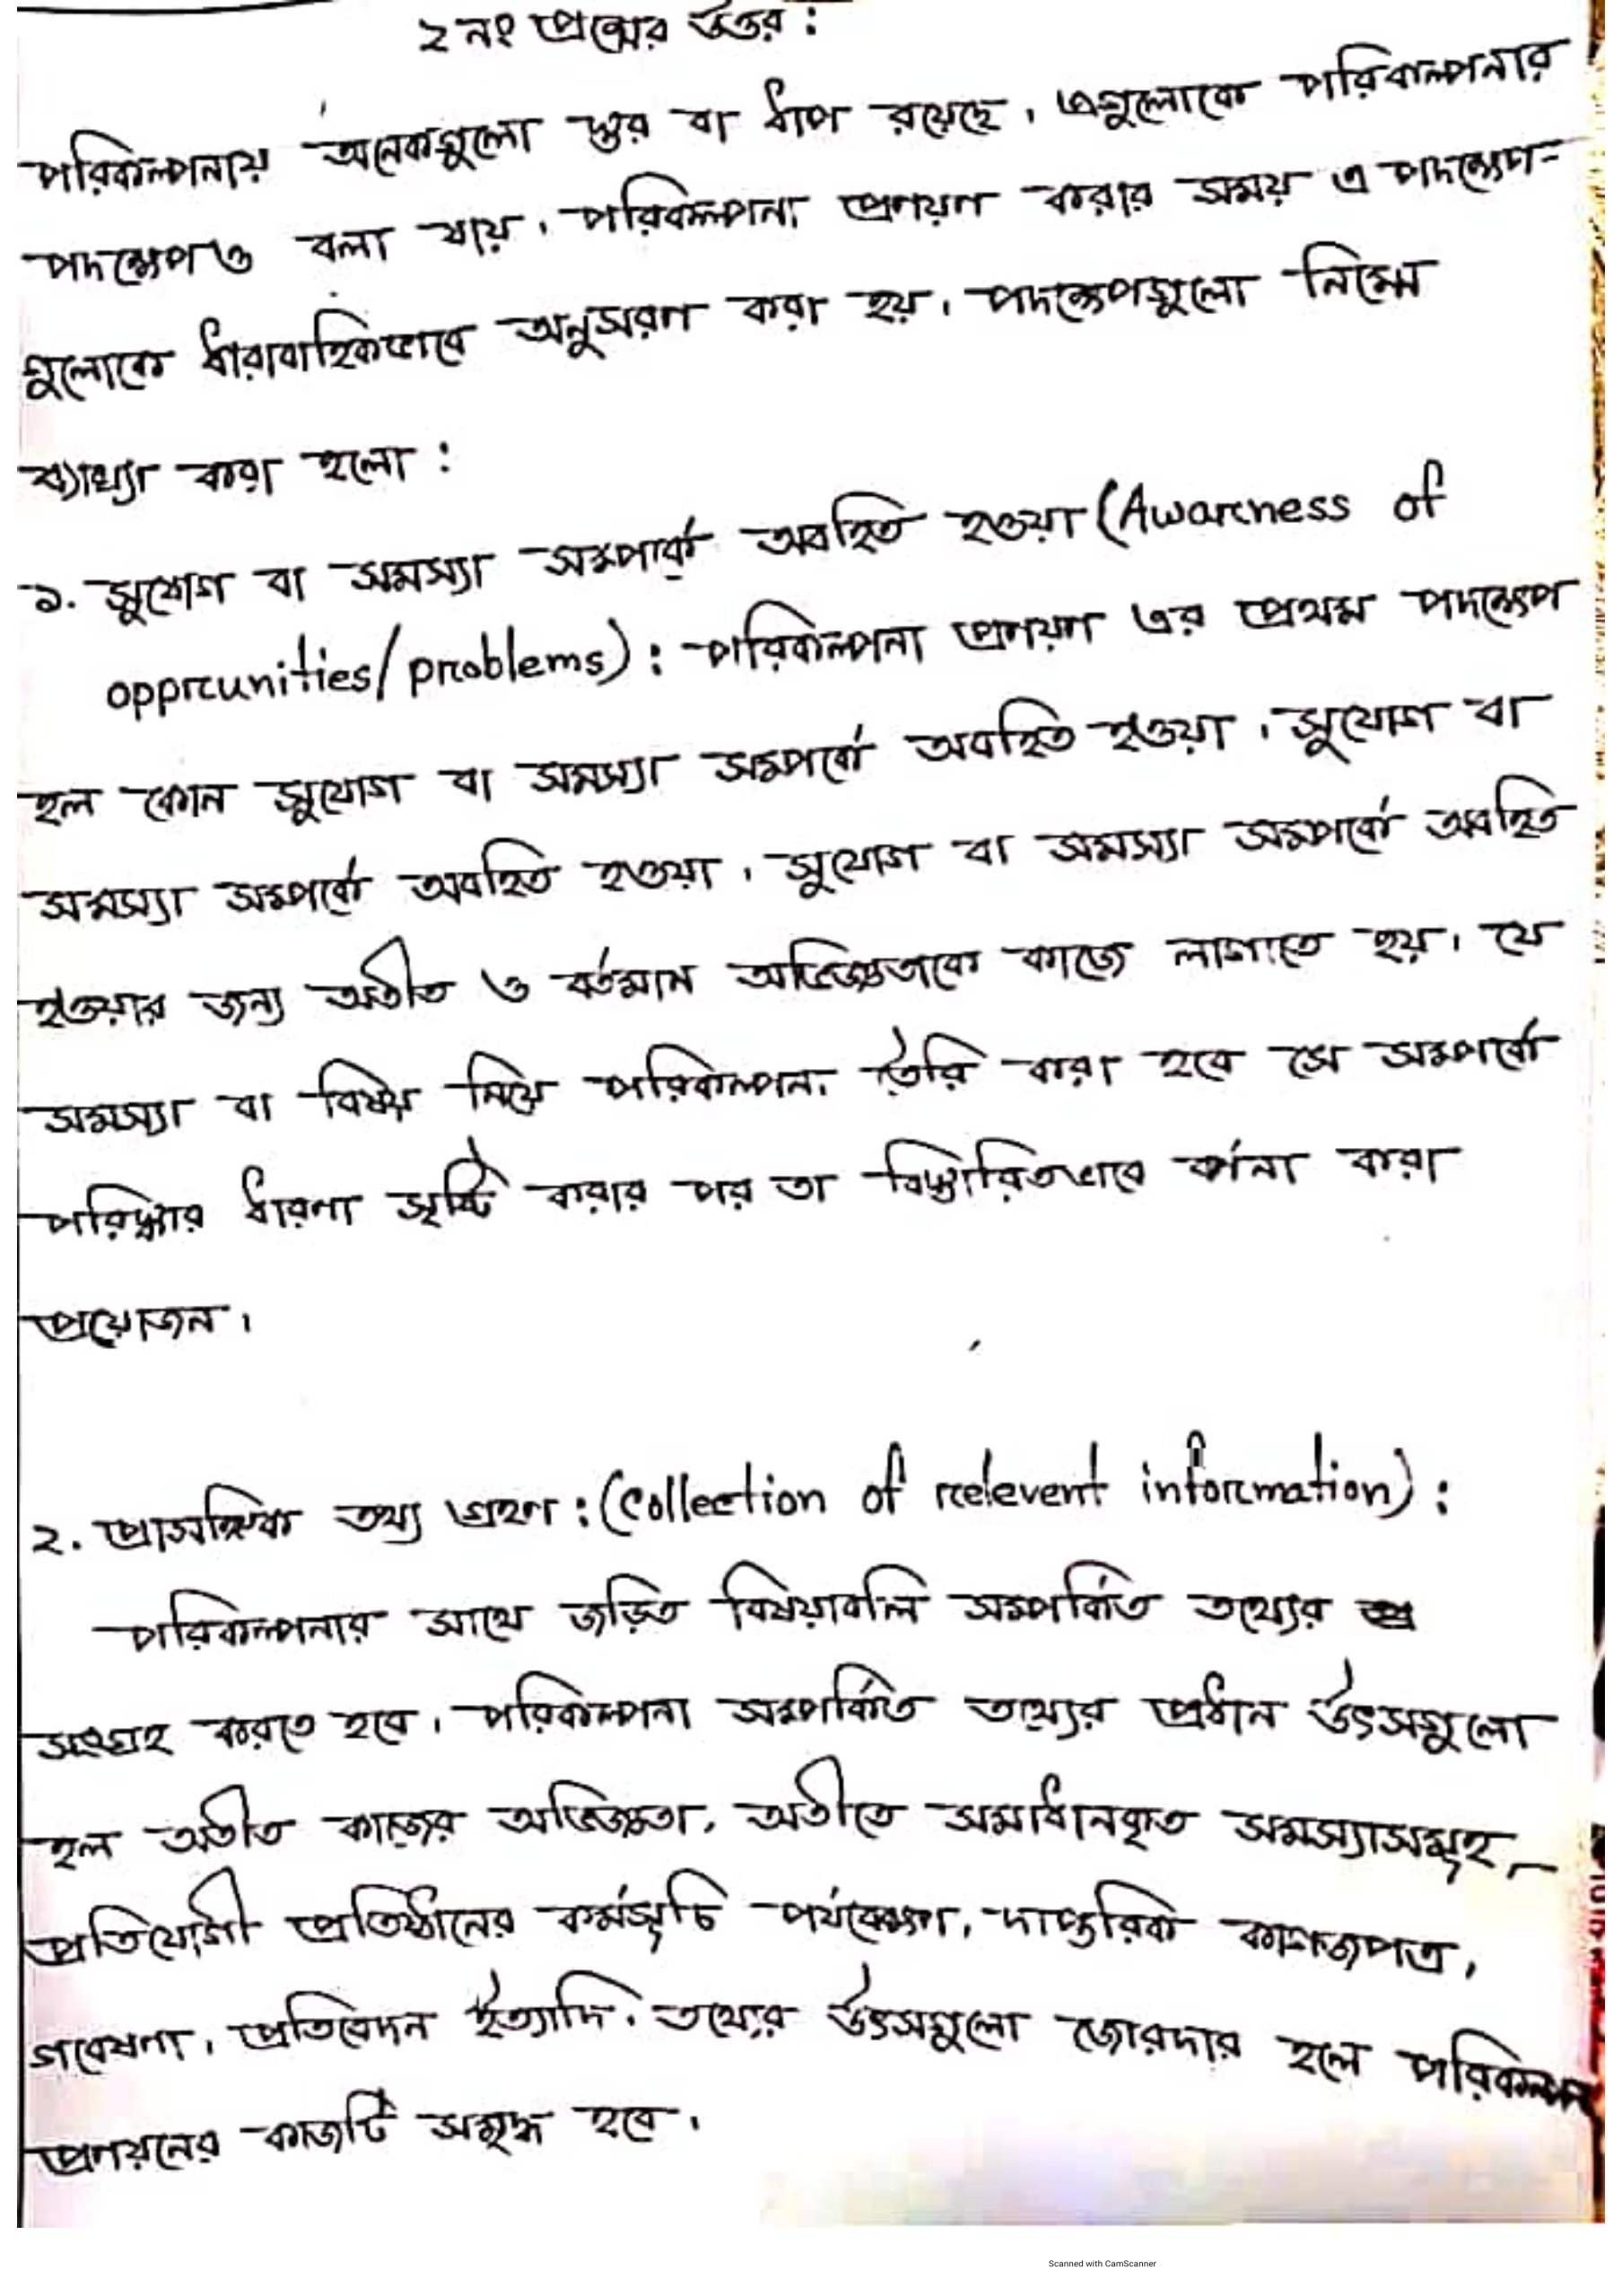 ২নং প্রশ্নের উত্তর :
পরিকল্পনায় অনেকগুলো স্তর বা ধাপ রয়েছে। এগুলোকে পরিকল্পনার
পদক্ষেপও বলা যায়। পরিকল্পনা প্রণয়ণ করার সময় এ পদক্ষেপ-
গুলোকে ধারাবাহিকভাবে অনুসরণ করা হয়। পদক্ষেপগুলো নিম্নে
ব্যাখ্যা করা হলো :
১. সুযোগ বা সমস্যা সম্পর্কে অবহিত হওয়া (Awareness of
opprcunities/problems) : পরিকল্পনা প্রণয়ণ এর প্রথম পদক্ষেপ
হল কোন সুযোগ বা সমস্যা সম্পর্কে অবহিত হওয়া। সুযোগ বা
সমস্যা সম্পর্কে অবহিত হওয়া। সুযোগ বা সমস্যা সম্পর্কে অবহিত
হওয়ার জন্য অতীত ও বর্তমান অভিজ্ঞতাকে কাজে লাগাতে হয়। যে
সমস্যা বা বিষয় নিয়ে পরিকল্পনা তৈরি করা হবে সে সম্পর্কে
পরিষ্কার ধারণা সৃষ্টি করার পর তা বিস্তারিতভাবে বর্ণনা করা
প্রয়োজন।
২. প্রাসঙ্গিক তথ্য গ্রহণ : (Collection of relevent information) :
পরিকল্পনার সাথে জড়িত বিষয়াবলি সম্পর্কিত তথ্যের
সংগ্রহ করতে হবে। পরিকল্পনা সম্পর্কিত তথ্যের প্রধান উৎসগুলো
হল অতীত কাজের অভিজ্ঞতা, অতীতে সমাধানকৃত সমস্যাসমূহ,
প্রতিযোগী প্রতিষ্ঠানের কর্মসূচি পর্যবেক্ষণ, দাপ্তরিক কাগজপত্র,
গবেষণা, প্রতিবেদন ইত্যাদি। তথ্যের উৎসগুলো জোরদার হলে পরিকল্পনা
প্রণয়নের কাজটি সমৃদ্ধ হবে।
Scanned with CamScanner